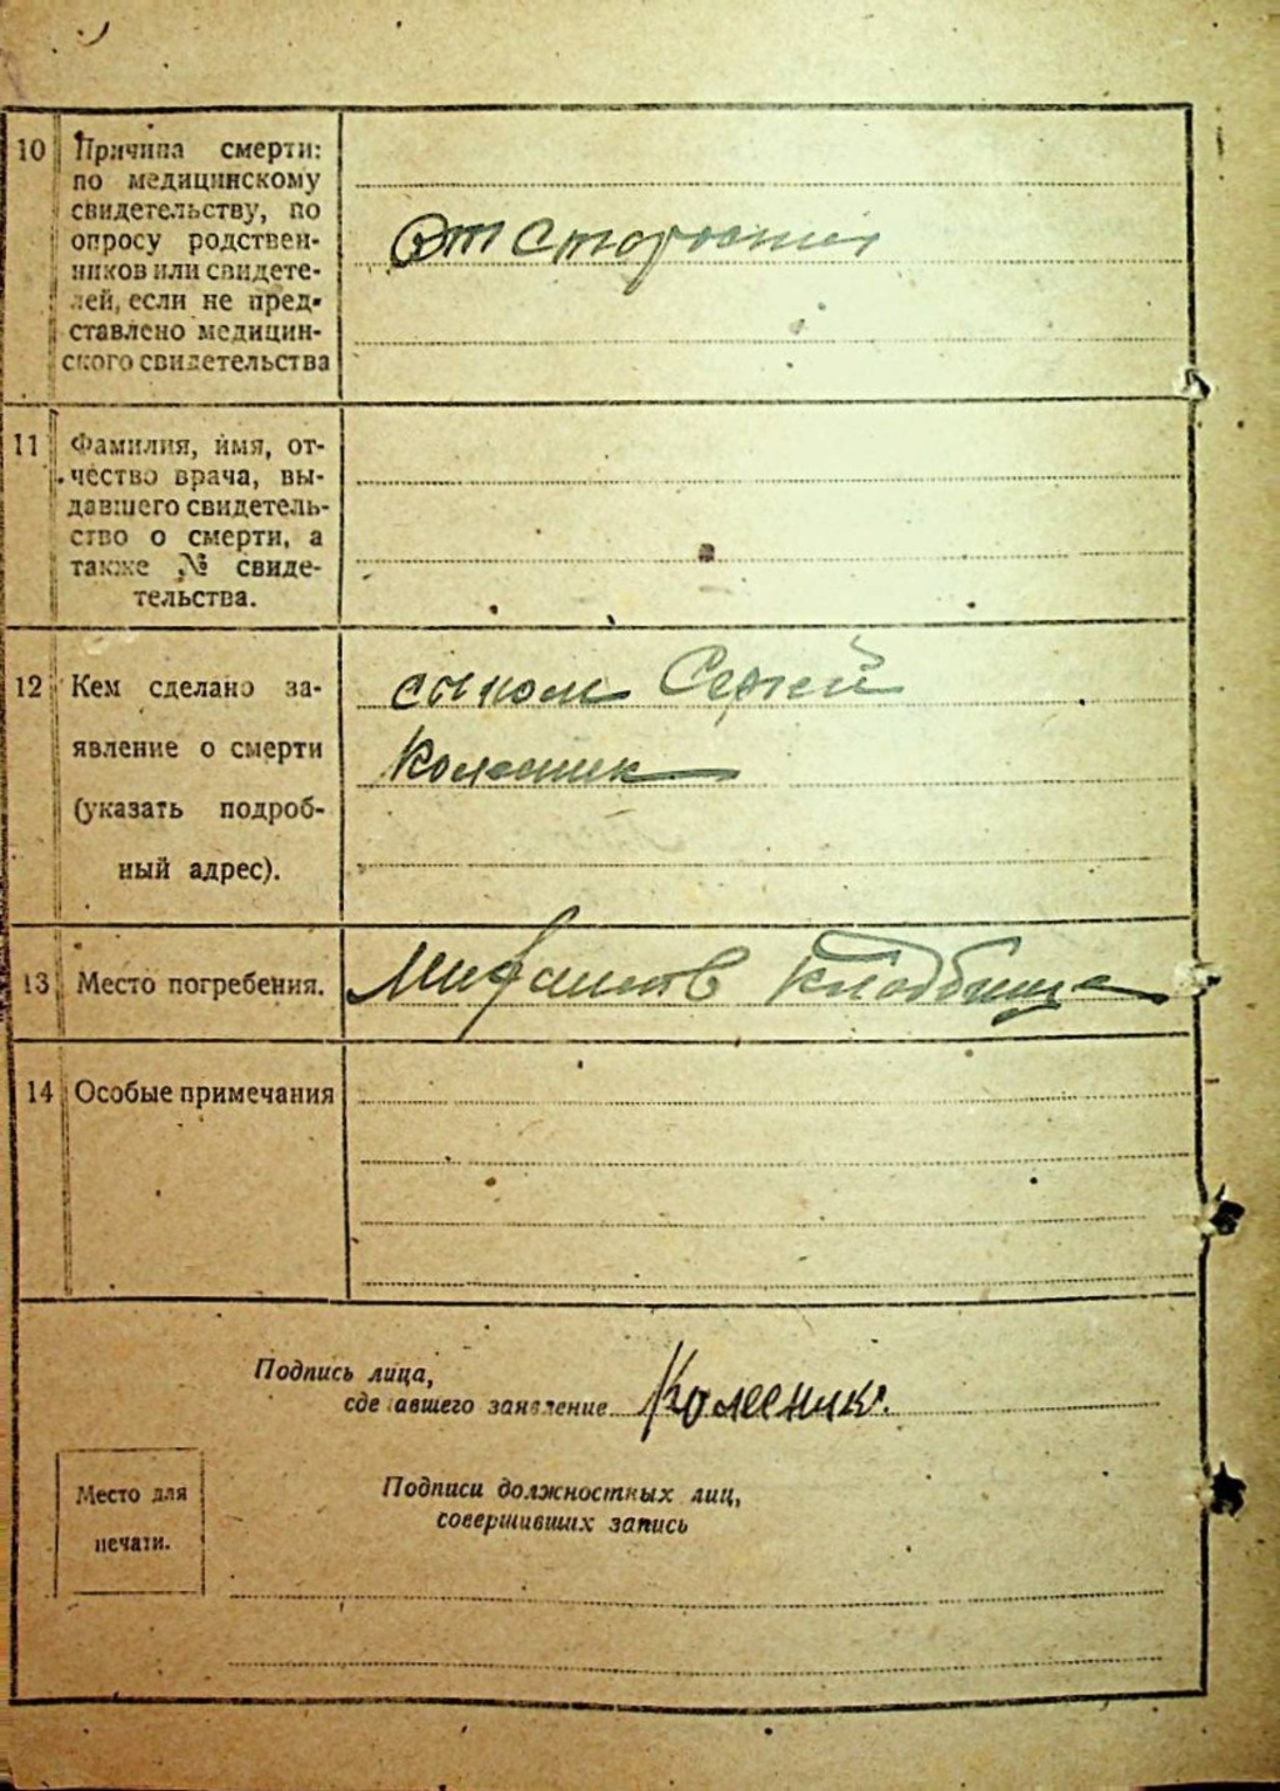 10 Причина смерти:
по медицинскому
свидетельству, по
опросу родствен-
ников или свидете-
лей, если не пред-
ставлено медицин-
ского свидетельства
От старости
11 Фамилия, имя, от-
чество врача, вы-
давшего свидетель-
ство о смерти, а
также № свиде-
тельства.
12 Кем сделано за-
явление о смерти
(указать подроб-
ный адрес).
сыном Сергей
Колесник
13 Место погребения.
кладбище
14 Особые примечания
Подпись лица,
сделавшего заявление Колесник.
Место для
печати.
Подписи должностных лиц,
совершивших запись